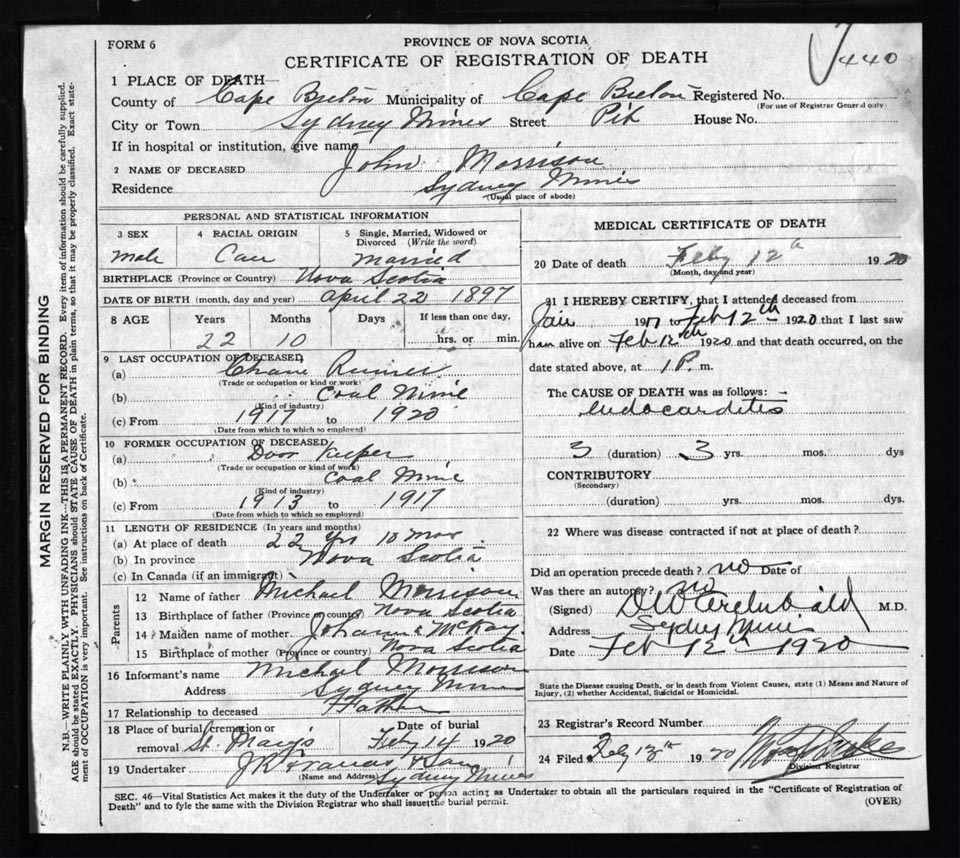 FORM 6
PROVINCE OF NOVA SCOTIA
CERTIFICATE OF REGISTRATION OF DEATH
440
1 PLACE OF DEATH—
County of Cape Breton Municipality of Cape Breton Registered No.
(For use of Registrar General only
City or Town Sydney Mines Street Pit House No.
If in hospital or institution, give name
2 NAME OF DECEASED John Morrison
Residence Sydney Mines
(Usual place of abode)
PERSONAL AND STATISTICAL INFORMATION
3 SEX 4 RACIAL ORIGIN 5 Single, Married, Widowed or
Divorced (Write the word)
Male Cau Married
BIRTHPLACE (Province or Country) Nova Scotia
DATE OF BIRTH (month, day and year) April 22 1897
8 AGE Years Months Days If less than one day,
22 10 hrs. or min.
9 LAST OCCUPATION OF DECEASED
(a) Chane Runner
(Trade or occupation or kind or work)
(b) Coal Mine
(Kind of industry)
(c) From 1917 to 1920
(Date from which to which so employed)
10 FORMER OCCUPATION OF DECEASED
(a) Door Keeper
(Trade or occupation or kind of work)
(b) Coal Mine
(Kind of industry)
(c) From 1913 to 1917
(Date from which to which so employed)
11 LENGTH OF RESIDENCE (In years and months)
(a) At place of death 22 yrs 10 mos.
(b) In province Nova Scotia
(c) In Canada (if an immigrant)
Parents
12 Name of father Michael Morrison
13 Birthplace of father (Province or country) Nova Scotia
14 Maiden name of mother Johanna McKay
15 Birthplace of mother (Province or country) Nova Scotia
16 Informant's name Michael Morrison
Address Sydney Mines
17 Relationship to deceased Father
18 Place of burial, cremation or Date of burial
removal St. Mary's Feby 14 1920
19 Undertaker & Son
(Name and Address) Sydney Mines
MEDICAL CERTIFICATE OF DEATH
20 Date of death Feby 12th 1920
(Month, day and year)
21 I HEREBY CERTIFY, that I attended deceased from
Jan 1917 to Feb 12th 1920 that I last saw
him alive on Feb 12th 1920 and that death occurred, on the
date stated above, at 1 P. m.
The CAUSE OF DEATH was as follows:
Endocarditis
3 (duration) 3 yrs. mos. dys
CONTRIBUTORY
(Secondary)
(duration) yrs. mos. dys.
22 Where was disease contracted if not at place of death?
Did an operation precede death? no Date of
Was there an autopsy? no
(Signed) M.D.
Address Sydney Mines
Date Feb 12th 1920
State the Disease causing Death, or in death from Violent Causes, state (1) Means and Nature of
Injury, (2) whether Accidental, Suicidal or Homicidal.
23 Registrar's Record Number
24 Filed Feby 13th 1920
Division Registrar
SEC. 46—Vital Statistics Act makes it the duty of the Undertaker or person acting as Undertaker to obtain all the particulars required in the "Certificate of Registration of
Death" and to fyle the same with the Division Registrar who shall issue the burial permit.
(OVER)
MARGIN RESERVED FOR BINDING
N.B.—WRITE PLAINLY WITH UNFADING INK—THIS IS A PERMANENT RECORD. Every item of information should be carefully supplied.
AGE should be stated EXACTLY. PHYSICIANS should STATE CAUSE OF DEATH in plain terms, so that it may be properly classified. Exact state-
ment of OCCUPATION is very important. See instructions on back of Certificate.